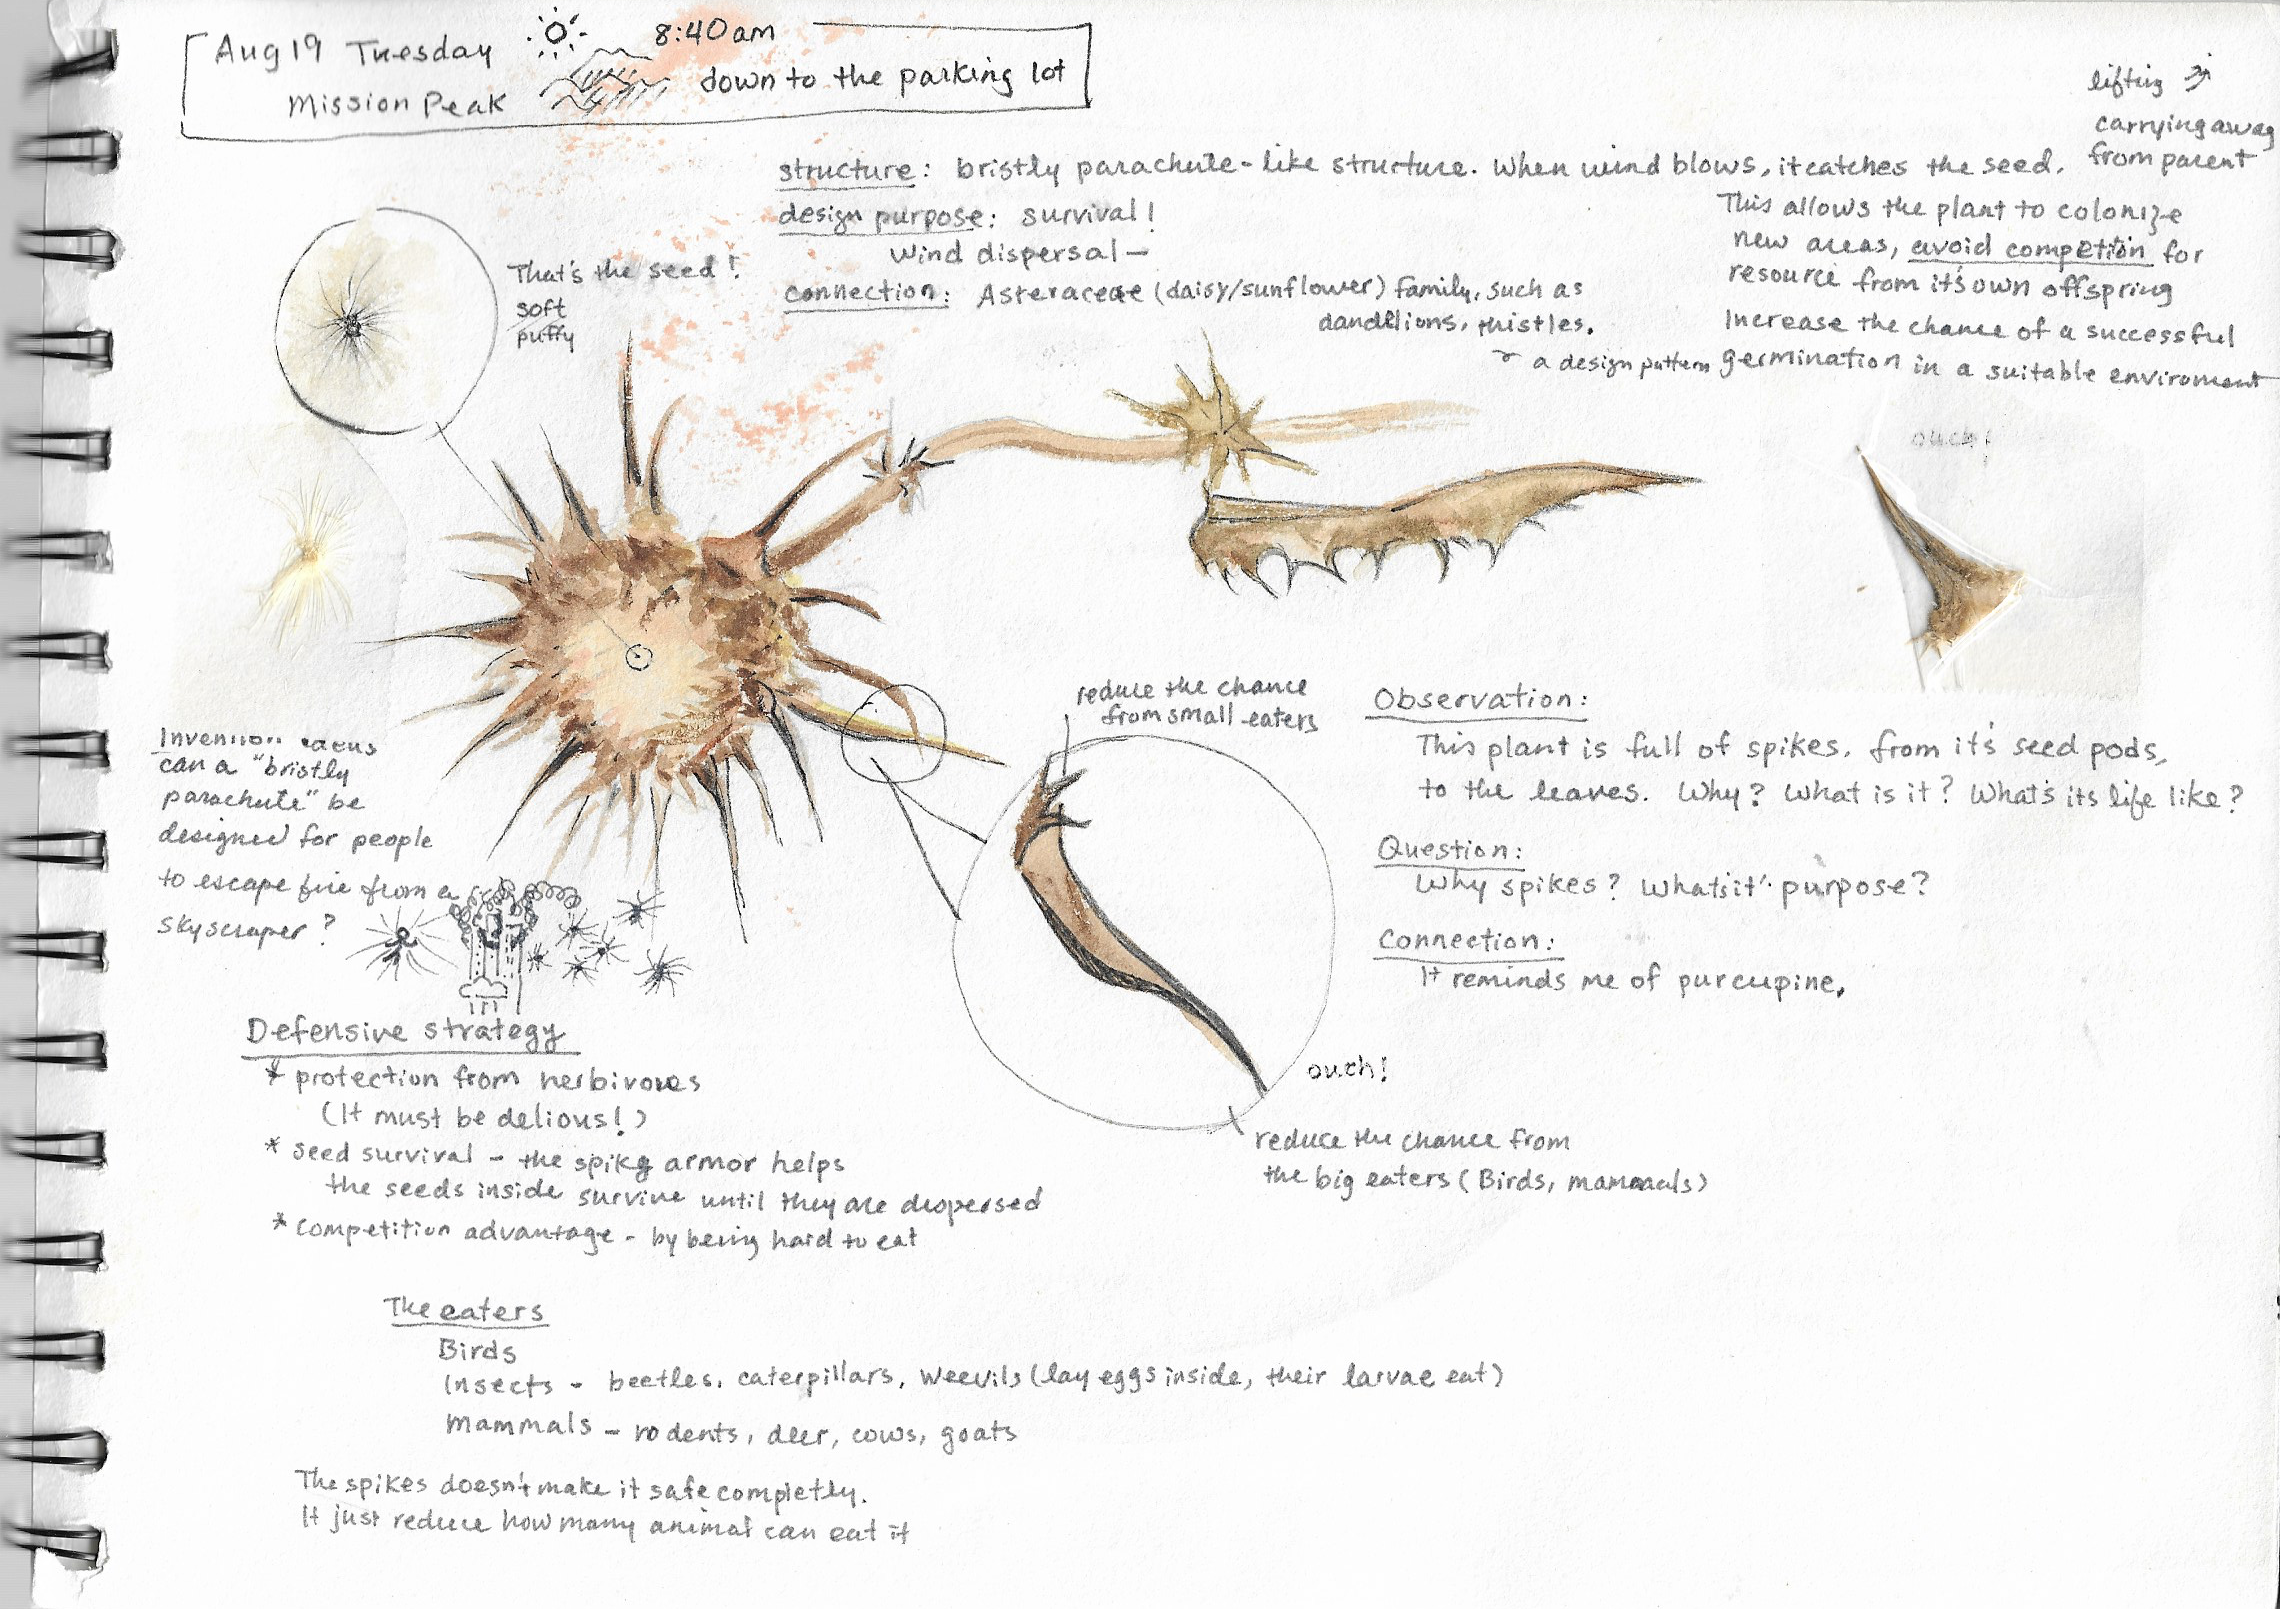 Aug 19 Tuesday
Mission Peak
8:40am
down to the parking lot
structure: bristly parachute-like structure. When wind blows, it catches the seed.
lifting
carrying away
from parent
design purpose: survival!
Wind dispersal —
This allows the plant to colonize
new areas, avoid competion for
resource from it's own offspring
Increase the chance of a successful
germination in a suitable enviroment
connection: Asteraceae (daisy/sunflower) family, such as
dandelions, thistles.
a design pattern
That's the seed!
soft
puffy
ouch!
reduce the chance
from small eaters
Observation:
This plant is full of spikes. from it's seed pods,
to the leaves. Why? What is it? What's its life like?
Question:
Why spikes? What's it' purpose?
Connection:
It reminds me of purcupine.
ouch!
reduce the chance from
the big eaters (Birds, mammals)
Invention ideas
can a "bristly
parachute" be
designed for people
to escape fire from a
skyscraper?
Defensive strategy
* protection from herbivores
(It must be delious!)
* seed survival - the spiky armor helps
the seeds inside survive until they are dispersed
* competition advantage - by being hard to eat
The eaters
Birds
Insects - beetles, caterpillars, weevils (lay eggs inside, their larvae eat)
Mammals - rodents, deer, cows, goats
The spikes doesn't make it safe completly.
It just reduce how many animal can eat it